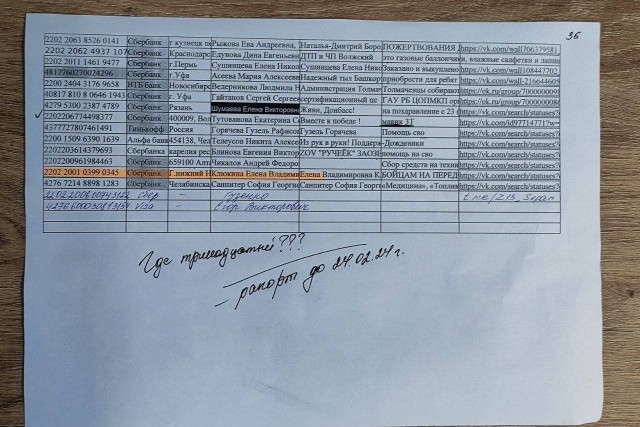 36
2202 2063 8526 0141 Сбербанк г кузнецк Рыжова Ева Андреевна, Наталья-Дмитрий Боро ПОЖЕРТВОВАНИЯ https://vk.com/wall706379581
2202 2062 4937 107 Сбербанк Краснодарс Едунова Дина Евгеньевн ДТП и ЧП Волжский это газовые баллончики, влажные салфетки и
2202 2011 1461 9477 Сбербанк г.Пермь Сушинцева Елена Никол Сушинцева Елена Нико Заказано и выкуплено https://vk.com/wall108447702
4817760270024296 Сбербанк г Уфа Асеева Мария Алексеевн Надежный тыл Башкор приобрести для ребят https://vk.com/wall-216644605
2200 2404 3176 9658 НТБ банк Новосибирс Ведерникова Людмила Н Администрация Толма Толмачевцы собирают https://ok.ru/group/7000000099
40817 810 8 0646 1943 Сбербанк г. Уфа Гайтанов Сергей Сергеев сертификационный це ГАУ РБ ЦОПМКП https://ok.ru/group/7000000080
4279 5300 2387 4789 Сбербанк Рязань Шумаева Елена Викторовн Живи, Донбасс! на поздравление с 23 https://vk.com/search/statuses?
2202206774498377 Сбербанк 400009, Вол Тутованова Екатерина С Вместе к победе ! https://vk.com/id97714771?w=
4377727807461491 Тинькофф Россия Горячева Гузель Рафисов Гузель Горячева Помощь сво https://vk.com/search/statuses?
2200 1509 6390 1639 Альфа банк 454138, Чел Телеусов Никита Алексе Из рук в руки! Поддерж -Дождевики https://vk.com/search/statuses?
2202203614379693 Сбербанк карелия рес Блинова Евгения Виктор ZOV "РУЧЕЁК" ЗАОЗЕ помощь на сво https://vk.com/search/statuses?
2202200961984463 Сбербанк 659100 Алт Чикалов Андрей Федоро Сбор средств на техни https://vk.com/search/statuses?
2202 2001 0399 0345 Сбербанк Г.нижний Н Клюкина Елена Владими Елена Владимировна К БОЙЦАМ НА ПЕРЕД https://vk.com/search/statuses?
4276 7214 8898 1283 Сбербанк Челябинска Санпитер София Георгие Санпитер София Георги «Медицина», «Топли https://vk.com/search/statuses?
Сбер -
Visa - Егор Викторович
Где тринадцатый???
- рапорт до 24.02.24 г.